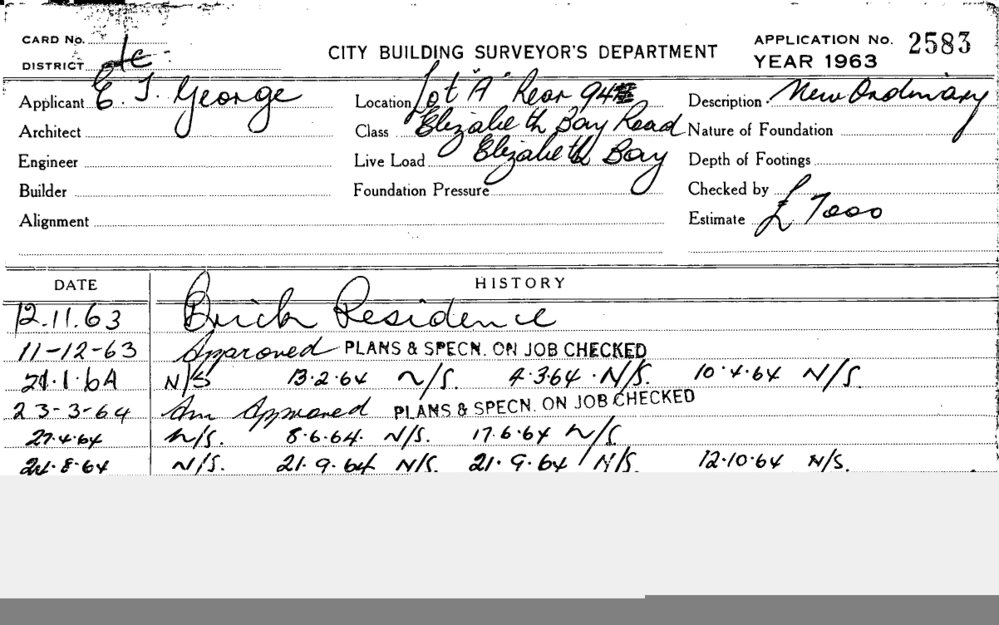 CARD No.
CITY BUILDING SURVEYOR'S DEPARTMENT
APPLICATION No. 2583
DISTRICT
YEAR 1963
Applicant E. J. George
Location Lot "A" Rear 94
Description New Ordinary
Architect
Class Elizabeth Bay Road
Nature of Foundation
Engineer
Live Load Elizabeth Bay
Depth of Footings
Builder
Foundation Pressure
Checked by
Alignment
Estimate £ 7000
DATE HISTORY
12.11.63 Brick Residence
11-12-63 Approved PLANS & SPECN. ON JOB CHECKED
21.1.64 N/S 13.2.64 N/S. 4.3.64. N/S. 10.4.64 N/S.
23-3-64 Am Approved PLANS & SPECN. ON JOB CHECKED
27.4.64 N/S. 8.6.64. N/S. 17.6.64 N/S
24.8.64 N/S. 21.9.64 N/S. 21.9.64 N/S. 12.10.64 N/S.